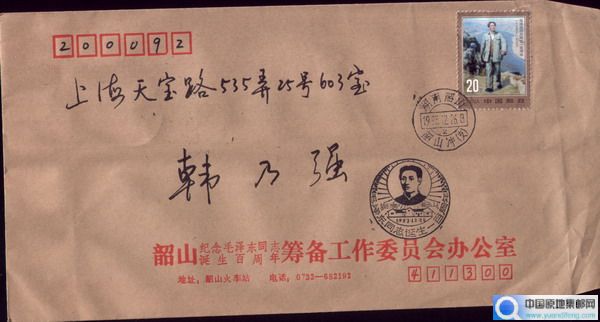 200092
20
中国邮政
上海天宝路535弄25号603室
湖南韶山
1993.12.26.8
韶山冲(支)
韩乃强
1993.12.26
韶山纪念毛泽东同志诞生百周年筹备工作委员会办公室
地址：韶山火车站 电话：0732-682192
411300
中国原地邮网
www.yuandifeng.com